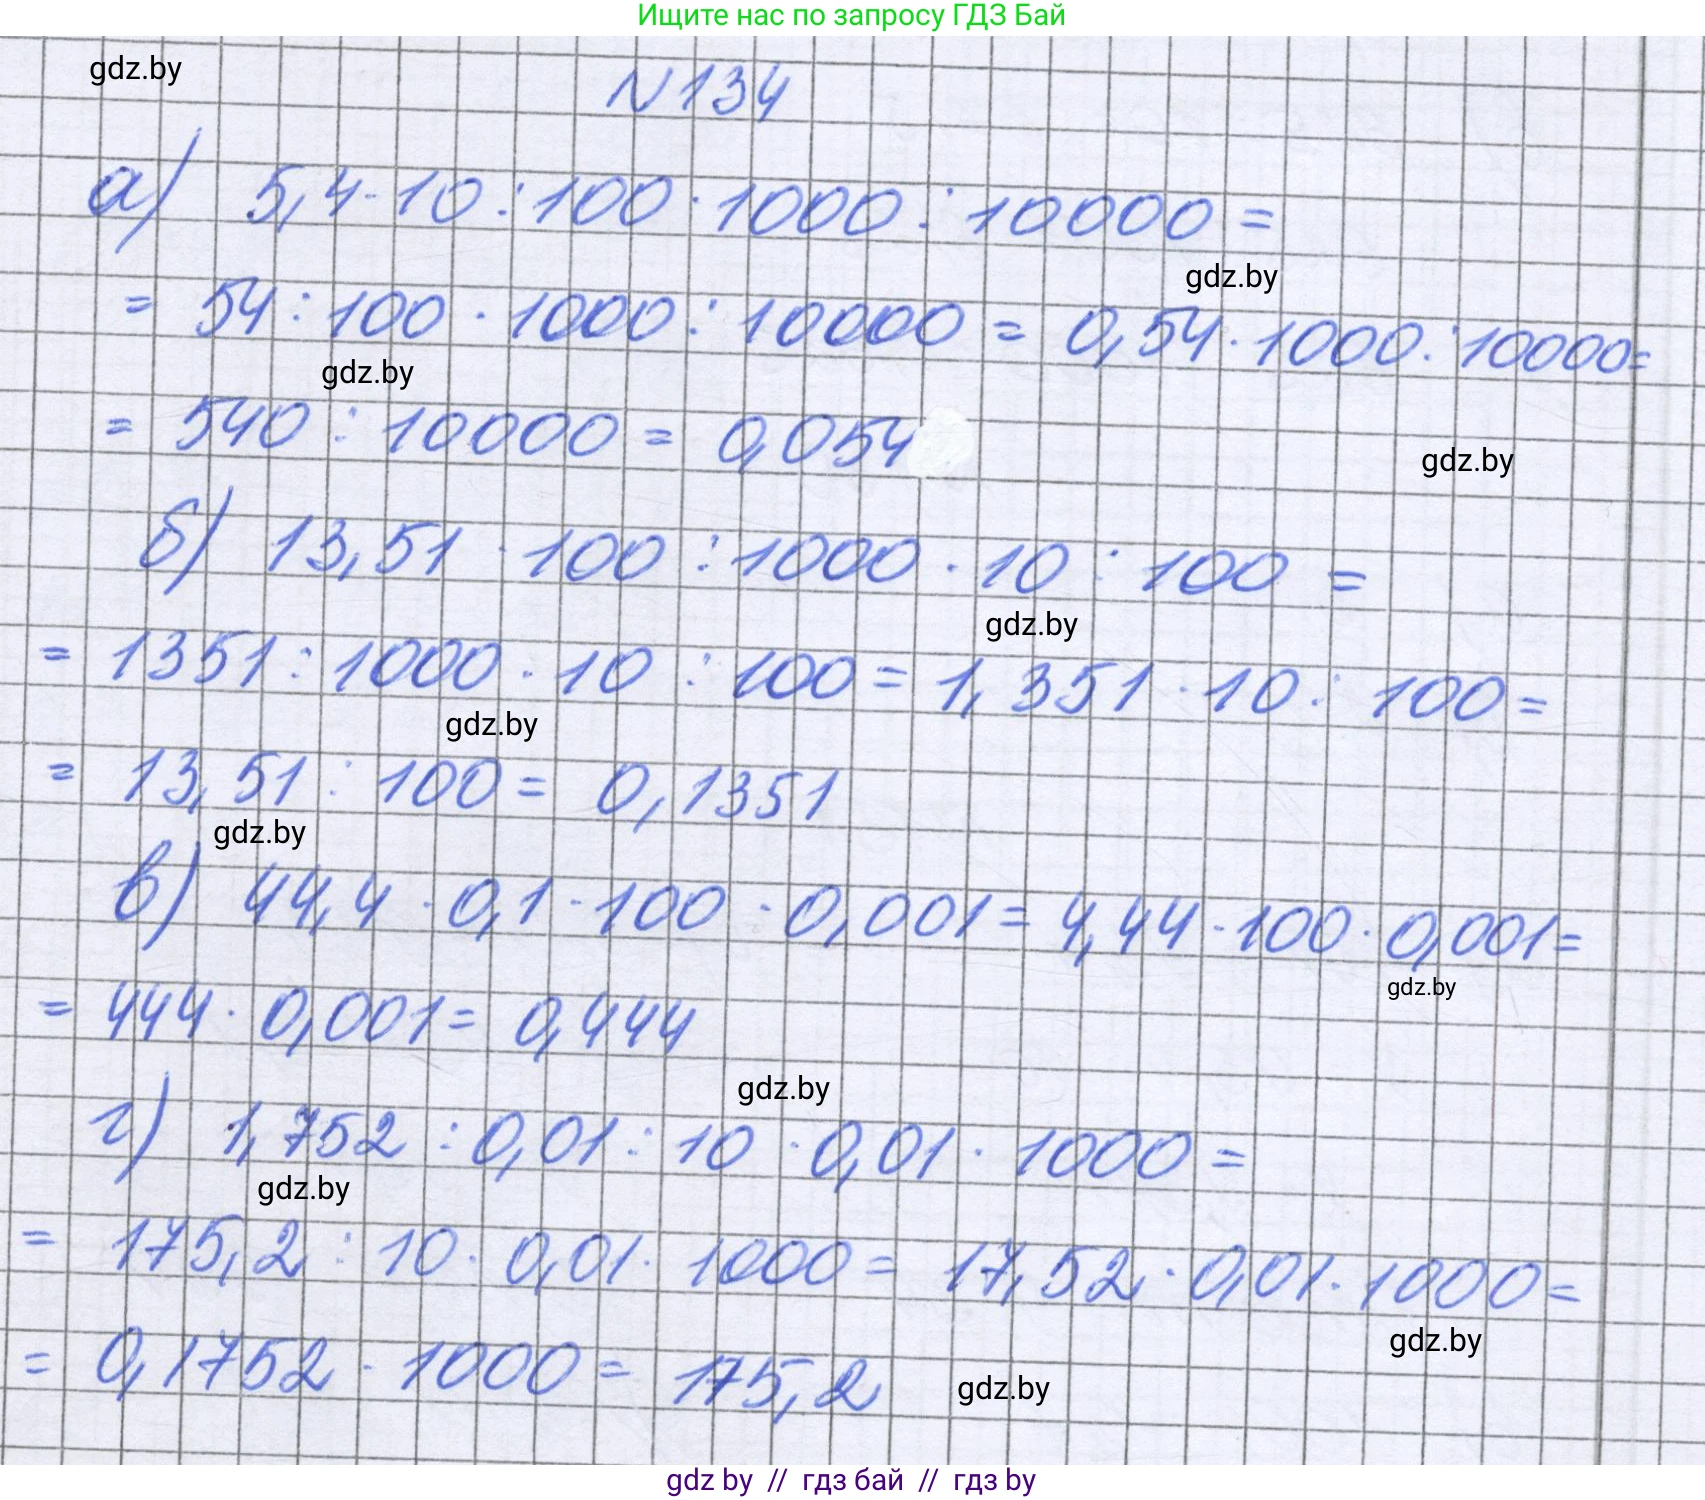 Ищите нас по запросу ГДЗ Бай
gdz.by
N134
а) 5,4·10:100·1000:10000=
gdz.by
= 54:100·1000:10000 = 0,54·1000:10000=
gdz.by
= 540:10000 = 0,054
gdz.by
б) 13,51·100:1000·10:100=
gdz.by
= 1351:1000·10:100= 1,351·10:100=
gdz.by
= 13,51:100= 0,1351
gdz.by
в) 44,4·0,1·100·0,001= 4,44·100·0,001=
gdz.by
= 444·0,001= 0,444
gdz.by
г) 1,752:0,01:10·0,01·1000=
gdz.by
= 175,2:10·0,01·1000= 17,52·0,01·1000=
gdz.by
= 0,1752·1000= 175,2
gdz.by
gdz by // гдз бай // гдз by